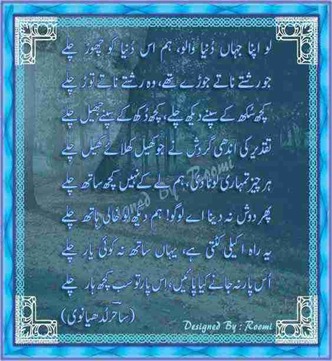 لو اپنا جہاں دُنیا والو، ہم اس دُنیا کو چھوڑ چلے
جو رشتے ناتے جوڑے تھے، وہ رشتے ناتے توڑ چلے
کچھ سُکھ کے سپنے دیکھ چلے، کچھ دُکھ کے سپنے جھیل چلے
تقدیر کی اندھی گردش نے جو کھیل کھلائے کھیل چلے
ہر چیز تمہاری لوٹا دی، ہم لے کے نہیں کچھ ساتھ چلے
پھر دوش نہ دینا اے لوگو! ہم دیکھ لو خالی ہاتھ چلے
یہ راہ اکیلی کٹتی ہے، یہاں ساتھ نہ کوئی یار چلے
اُس پار نہ جانے کیا پائیں، اس پار تو سب کچھ ہار چلے
(ساحر لدھیانوی)
Designed By : Roomi